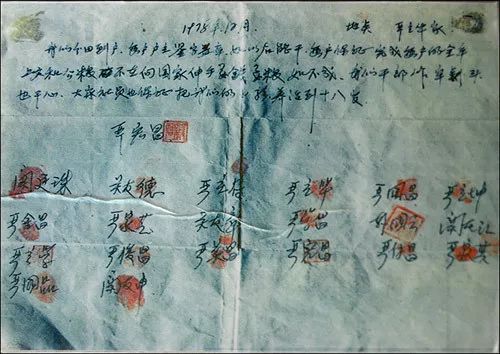 1978年12月 地点 严立华家
我们分田到户,每户户主签字盖章,如以后能干,每户保证完成每户的全年
上交和公粮 不在向国家伸手要钱要粮,如不成,我们干部作牢刹头
也干心,大家社员也保证把我们的小孩养活到十八岁。
严宏昌
关廷珠 关友德 严立付 严立华 严国昌 严立坤
严金昌 严家芝 关友章 严学昌 韩国云 关友江
严立学 严俊昌 严美昌 严宏昌 严付昌 严家其
严国品 关友申